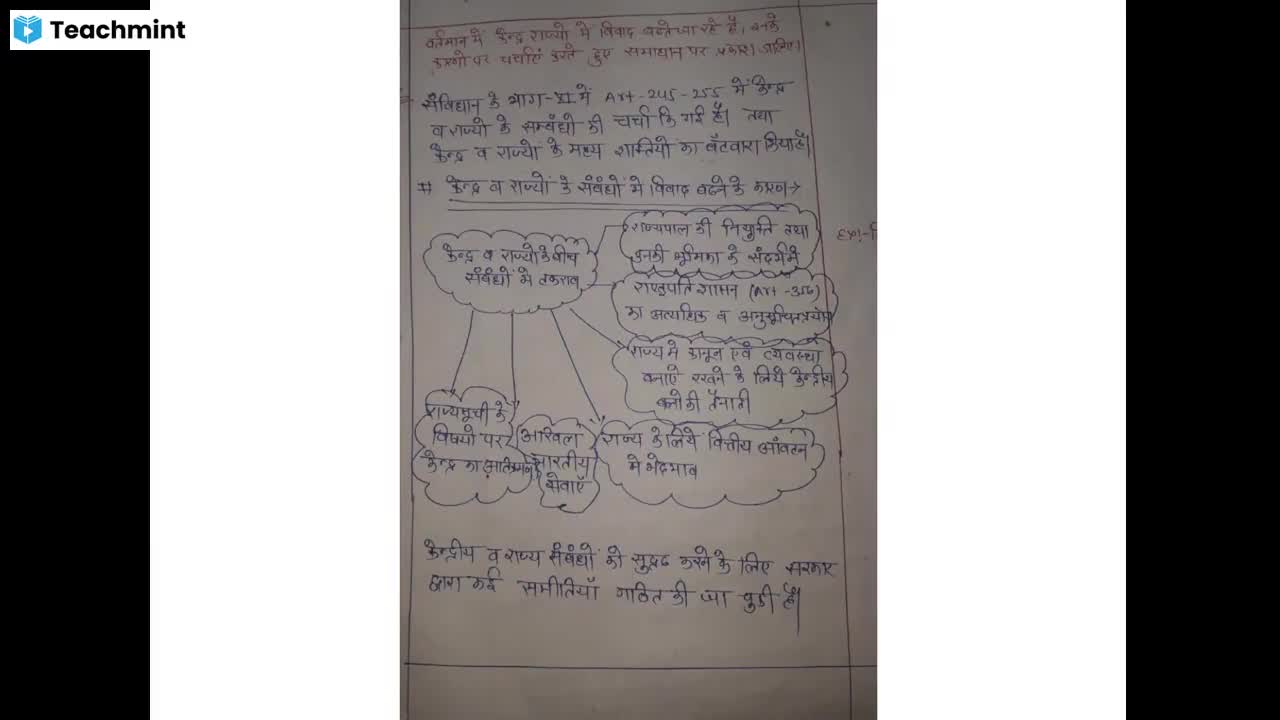 Teachmint
वर्तमान में केन्द्र राज्यो मे विवाद बढतेजा रहे है, इनके
कारणो पर चर्चाएं करते हुए समाधान पर प्रकाश डालिए।
संविधान के भाग-XI में Art-245-255 में केन्द्र
व राज्यो के सम्बंधो की चर्चा कि गई है। तथा
केन्द्र व राज्यों के मध्य शक्तियो का बँटवारा किया है।
# केन्द्र व राज्यों के संबंधों मे विवाद बढने के कारण→
केन्द्र व राज्योकेबीच
संबंधों मे टकराव
राज्यपाल की नियुक्ति तथा
उनकी भूमिका के संदर्भमे
Exp:-
राष्ट्रपति शासन (Art-356)
का अत्यधिक व
राज्य मे कानून एवं व्यवस्था
बनाऐ रखने के लिये केन्द्रीय
बलो की तैनाती
राज्यसूची के
विषयो पर
केन्द्र का अतिक्रमण
अखिल
भारतीय
सेवाएँ
राज्य के लिये वित्तीय आँवटन
मे भेदभाव
केन्द्रीय व राज्य संबंधों को सुद्रढ करने के लिए सरकार
द्वारा कई समीतियाँ गठित की जा चुकी है।